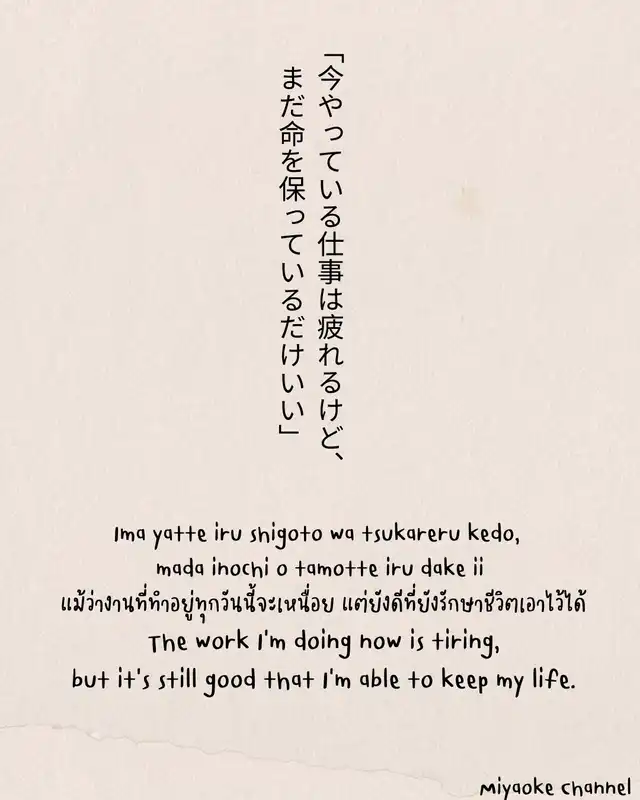 「今やっている仕事は疲れるけど、
まだ命を保っているだけいい」
Ima yatte iru shigoto wa tsukareru kedo,
mada inochi o tamotte iru dake ii
แม้ว่างานที่ทำอยู่ทุกวันนี้จะเหนื่อย แต่ยังดีที่ยังรักษาชีวิตเอาไว้ได้
The work I'm doing now is tiring,
but it's still good that I'm able to keep my life.
Miyaoke channel